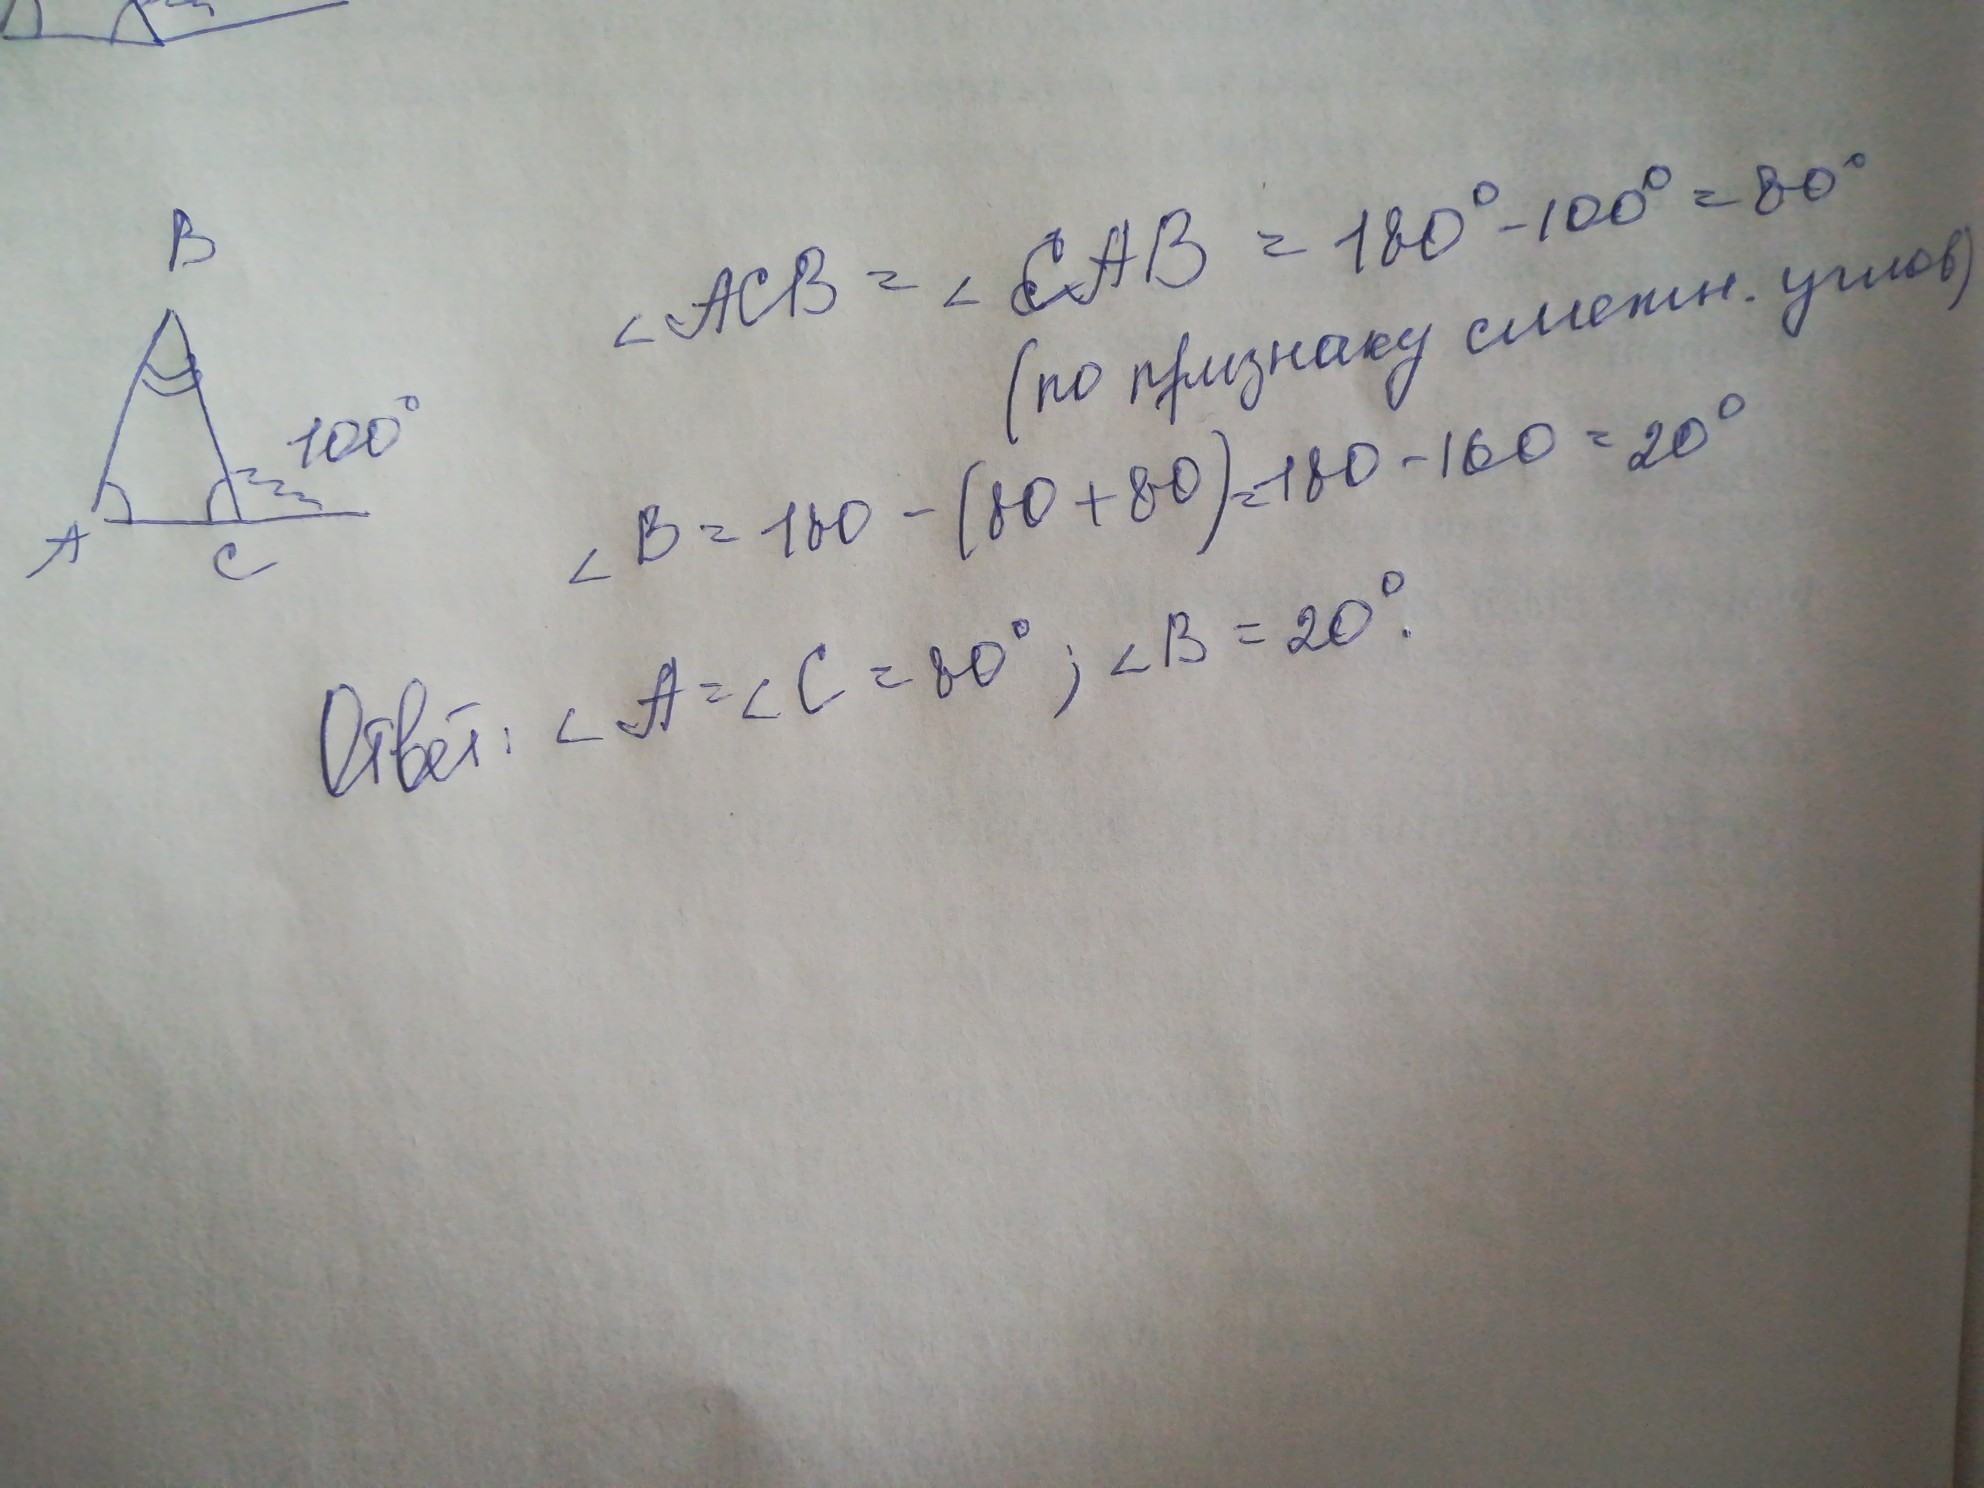 B
100°
A
C
∠ACB = ∠CAB = 180° - 100° = 80°
(по признаку смежн. углов)
∠B = 180 - (80 + 80) = 180 - 160 = 20°
Ответ: ∠A = ∠C = 80°; ∠B = 20°.